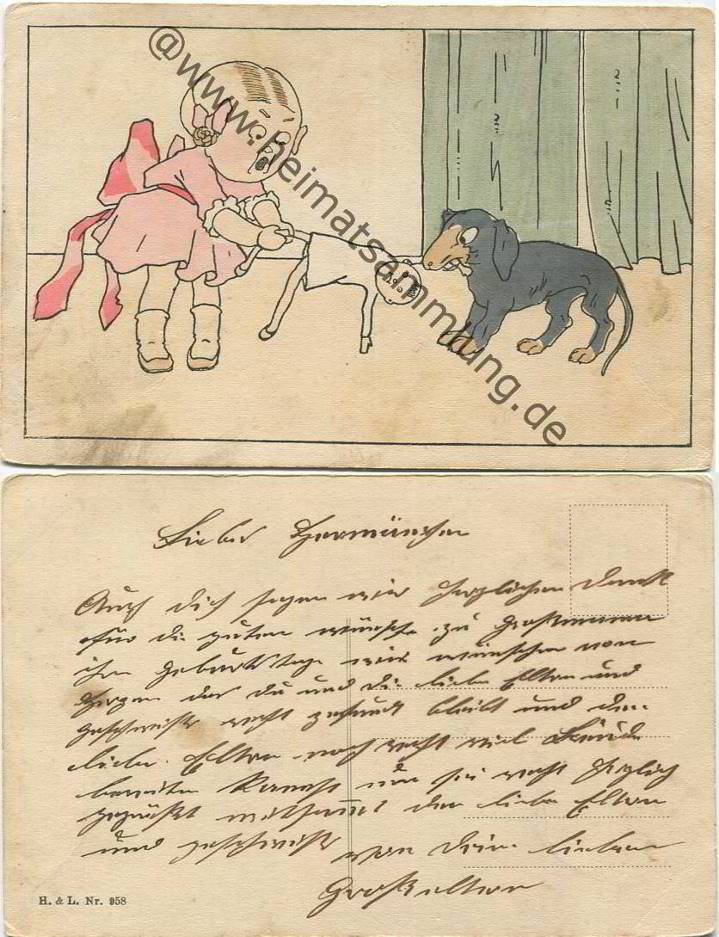 @www.heimatsammlung.de
Lieber Hermänchen
Auch dich sagen wir herzlichen Dank
für die guten wünsche zu Großmama
ihm geburtstage wir wünschen von
Herzen das du und die liebe Eltern und
geschwister recht gesund bleibt und den
liebe Eltern noch recht viel Freude
bereiten kannst nun sei recht herzlich
gegrüßt mitsammt den liebe Eltern
und geschwister von deine lieben
Großeltern
H. & L. Nr. 958